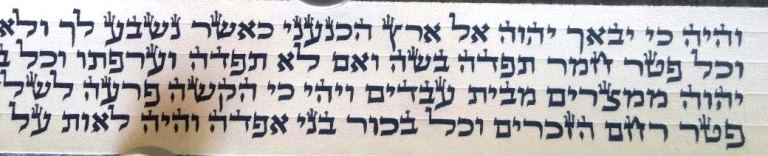 והיה כי יבאך יהוה אל ארץ הכנעני כאשר נשבע לך ולא
וכל פטר חמר תפדה בשה ואם לא תפדה וערפתו וכל ב
יהוה ממצרים מבית עבדים ויהי כי הקשה פרעה לשל
פטר רחם הזכרים וכל בכור בני אפדה והיה לאות על